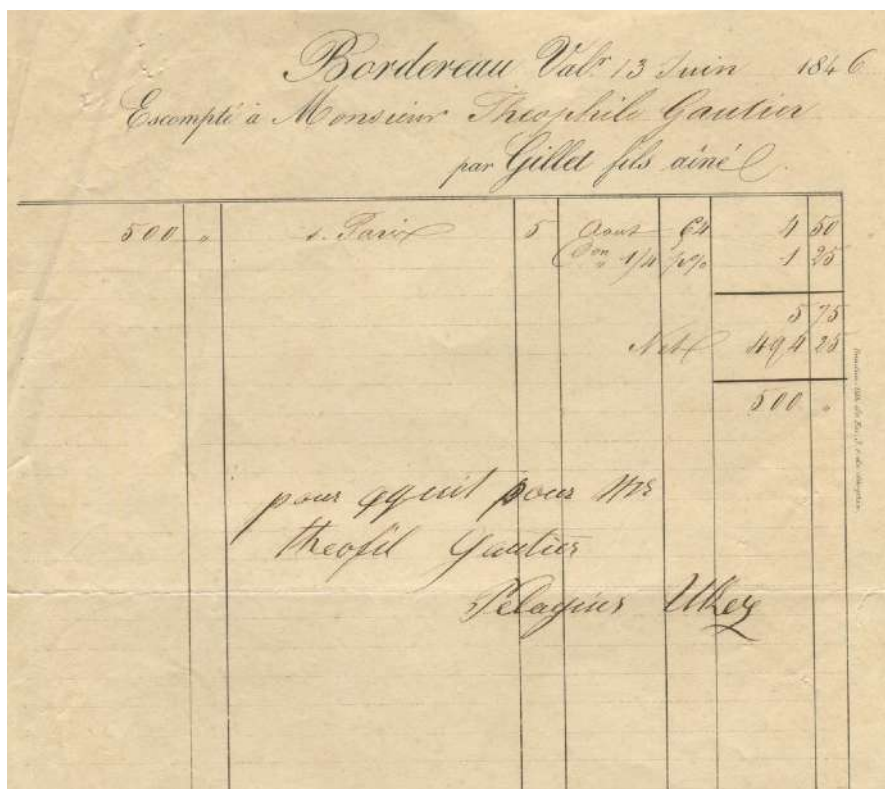 Bordereau Valr 13 Juin 1846
Escompté à Monsieur Theophile Gautier
par Gillet fils aîné
500 " s. Paris 5 Aout 54 4 50
Con " 1/4 p% 1 25
5 75
Net 494 25
500 "
pour aquit pour Mr
theofil Gautier
Pelagius